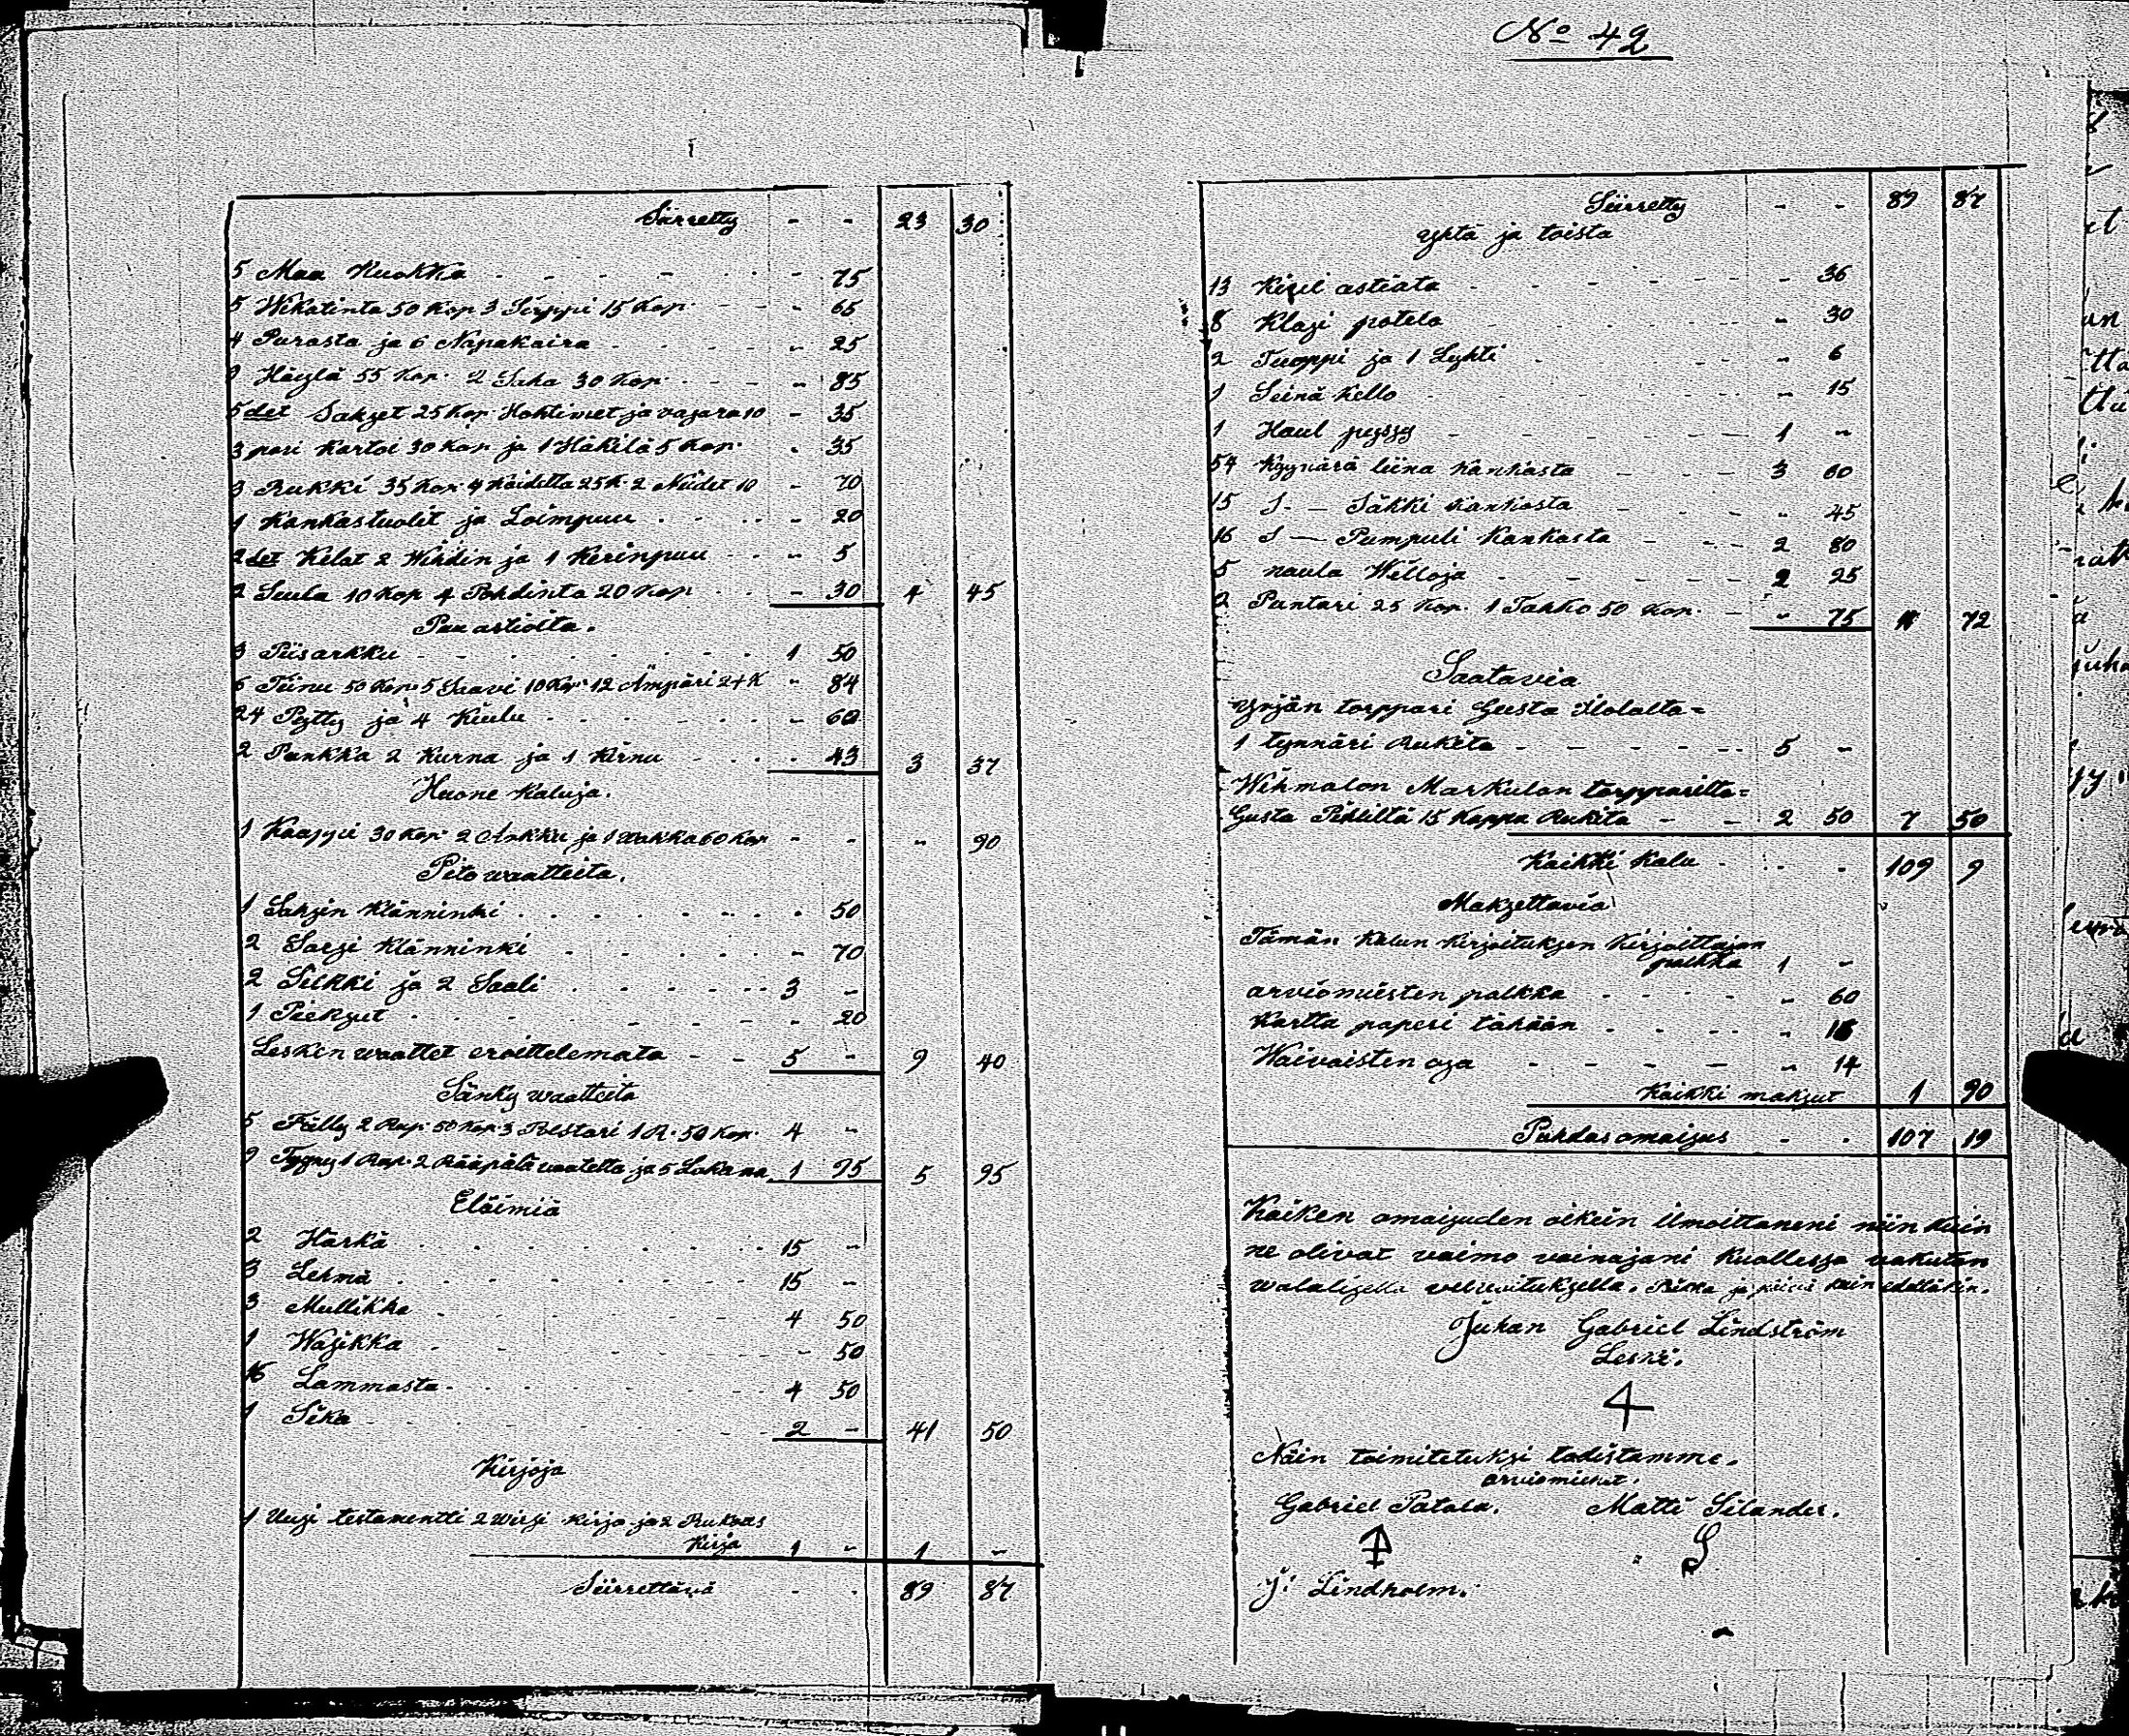 No 42
Siirretty - - 23 30
5 Maa Kuokka - - 75
5 Wikatinta 50 Kop 3 Sirppi 15 Kop. - 65
4 Purasta ja 6 Napakaira - 25
9 Häylä 55 Kop. 2 Saha 30 Kop. - 85
5 det Sakset 25 Kop Hohtimet ja vasara 10 - 35
3 pari Kartoi 30 Kop ja 1 Häkilä 5 Kop. - 35
3 Rukki 35 Kop. 4 Kaidetta 25 K. 2 Niidet 10 - 70
1 Kankastuolit ja Loimpuu - 20
2 det Kelat 2 Wihdin ja 1 Kerinpuu - 5
2 Seula 10 Kop 4 Pohdinta 20 Kop - 30 4 45
Puu astioita.
3 Piisarkku - 1 50
6 Tiinu 50 Kop. 5 Saavi 10 Kop. 12 Ämpäri 24 K - 84
24 Pytty ja 4 Kiulu - 60
2 Punkka 2 Kurna ja 1 Kirnu - 43 3 37
Huone Kaluja.
1 Kaappi 30 Kop. 2 Arkku ja 1 Wakka 60 Kop - - - 90
Pito waatteita.
1 Sahsin Klänninki - 50
2 Sarsi Klänninki - 70
2 Silkki ja 2 Saali - 3 -
1 Pieksut - 20
Lesken waattet eroittelemata - - 5 - 9 40
Sänky waatteita
5 Fälly 2 Rup. 50 Kop. 3 Polstari 1 R. 50 Kop. 4 -
9 Tyyny 1 Rup. 2 Rääpälä waatetta ja 5 Lakanaa 1 95 5 95
Eläimiä
2 Härkä - 15 -
3 Lehmä - 15 -
3 Mullikka - 4 50
1 Wasikka - 50
16 Lammasta - 4 50
1 Sika - 2 - 41 50
Kirjoja
1 Uusi testamentti 2 Wirsi Kirja ja 2 Rukous
Kirja 1 - 1 -
Siirrettävä - - 89 87
Siirretty - - 89 87
Yhtä ja toista
13 Kivil astiata - 36
8 Klasi potelo - 30
2 Tuoppi ja 1 Lyhti - 6
1 Seinä Kello - 15
1 Haul pyssy - 1 -
54 Kyynärä liina Kankasta - 3 60
15 S. — Säkki Kankasta - 45
16 S — Pumpuli Kankasta - 2 80
5 naula Willoja - 2 25
2 Puntari 25 Kop. 1 Tahko 50 Kop. - 75 11 72
Saatavia
Yrjän torppari Gusta Ilolalta=
1 tynnäri Rukita - 5 -
Wihmalon Markulan torpparilta=
Gusta Pihliltä 15 Kappa Rukita - - 2 50 7 50
Kaikki Kalu - - 109 9
Maksettavia
Tämän Kalun Kirjoituksen Kirjoittajan
palkka 1 -
arviomiesten palkka - 60
Kartta paperi tähään - 16
Waivaisten osa - 14
Kaikki maksut 1 90
Puhdas omaisus - - 107 19
Kaiken omaisuden oikein ilmoittaneni niin kuin
ne olivat vaimo vainajani Kuollessa vakutan
walalisella velvoituksella. Paikka ja päivä kuin edelläkin.
Juhan Gabriel Lindström
Leski.
Näin toimitetuksi todistamme.
arviomiehet.
Gabriel Patala. Matti Silander.
J. Lindholm.